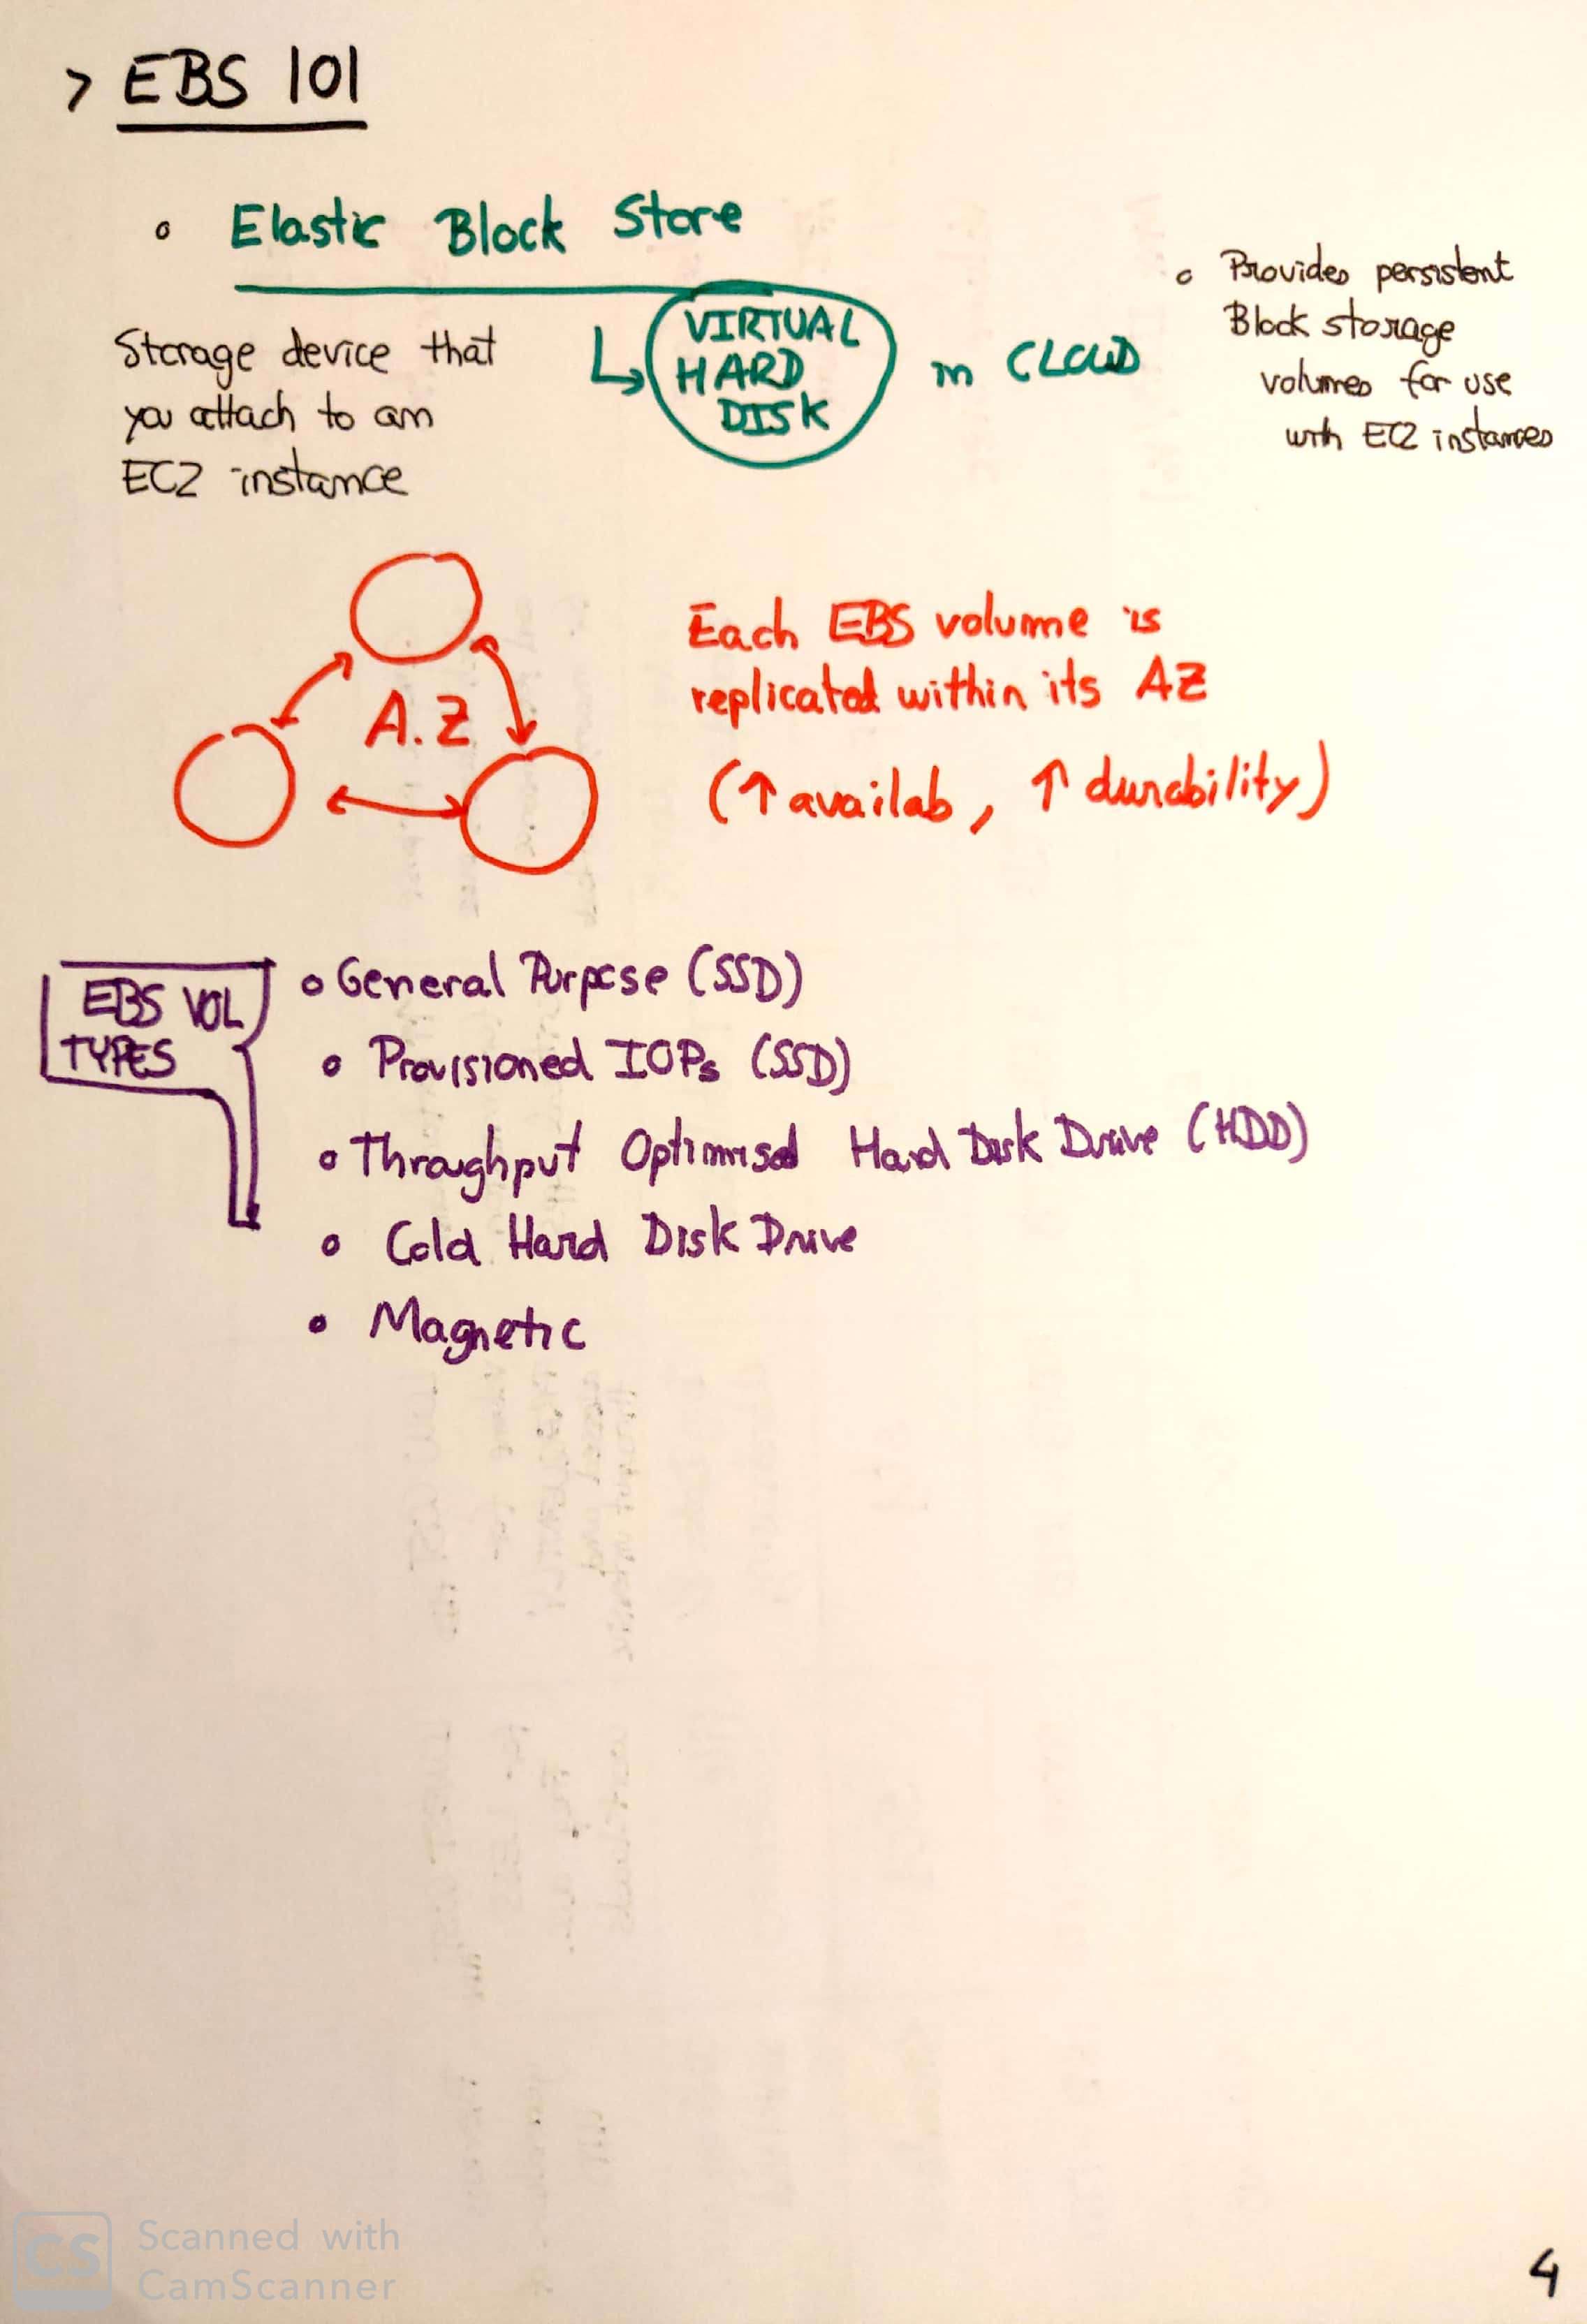 > EBS 101
Elastic Block Store
VIRTUAL
HARD
DISK
in CLOUD
Storage device that
you attach to an
EC2 instance
Provides persistent
Block storage
volumes for use
with EC2 instances
A.Z
Each EBS volume is
replicated within its AZ
(↑ availab, ↑ durability)
EBS VOL
TYPES
General Purpose (SSD)
Provisioned IOPs (SSD)
Throughput Optimised Hard Disk Drive (HDD)
Cold Hard Disk Drive
Magnetic
CS
Scanned with
CamScanner
4